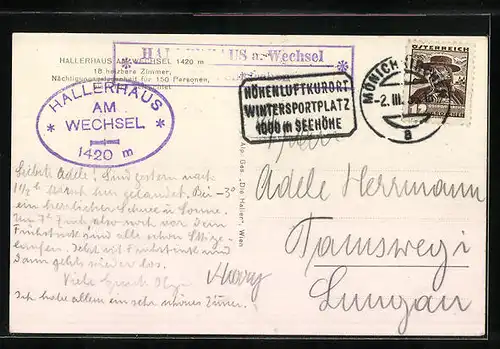 HALLERHAUS AM WECHSEL 1420 m
18 heizbare Zimmer,
Nächtigungsgelegenheit für 150 Personen,
HALLERHAUS a. Wechsel
HALLERHAUS
AM
WECHSEL
1420 m
HÖHENLUFTKURORT
WINTERSPORTPLATZ
1000 m SEEHÖHE
MÖNICH
-2. III.
a
ÖSTERREICH
12
Liebste Adele! Sind gestern nach
gelandet. Bei -3°
ein herrlicher Schnee u. Sonne.
Um 7h früh also noch vor dem
Frühstück sind alle schon
gelaufen. Jetzt wird Frühstück und
dann geht's wieder los.
Viele Grüsse Olga
Harry
Ich habe allein ein sehr schönes Zimmer.
Ges. „Die Hallen", Wien
Adele Herrmann
Tamsweg
Lungau